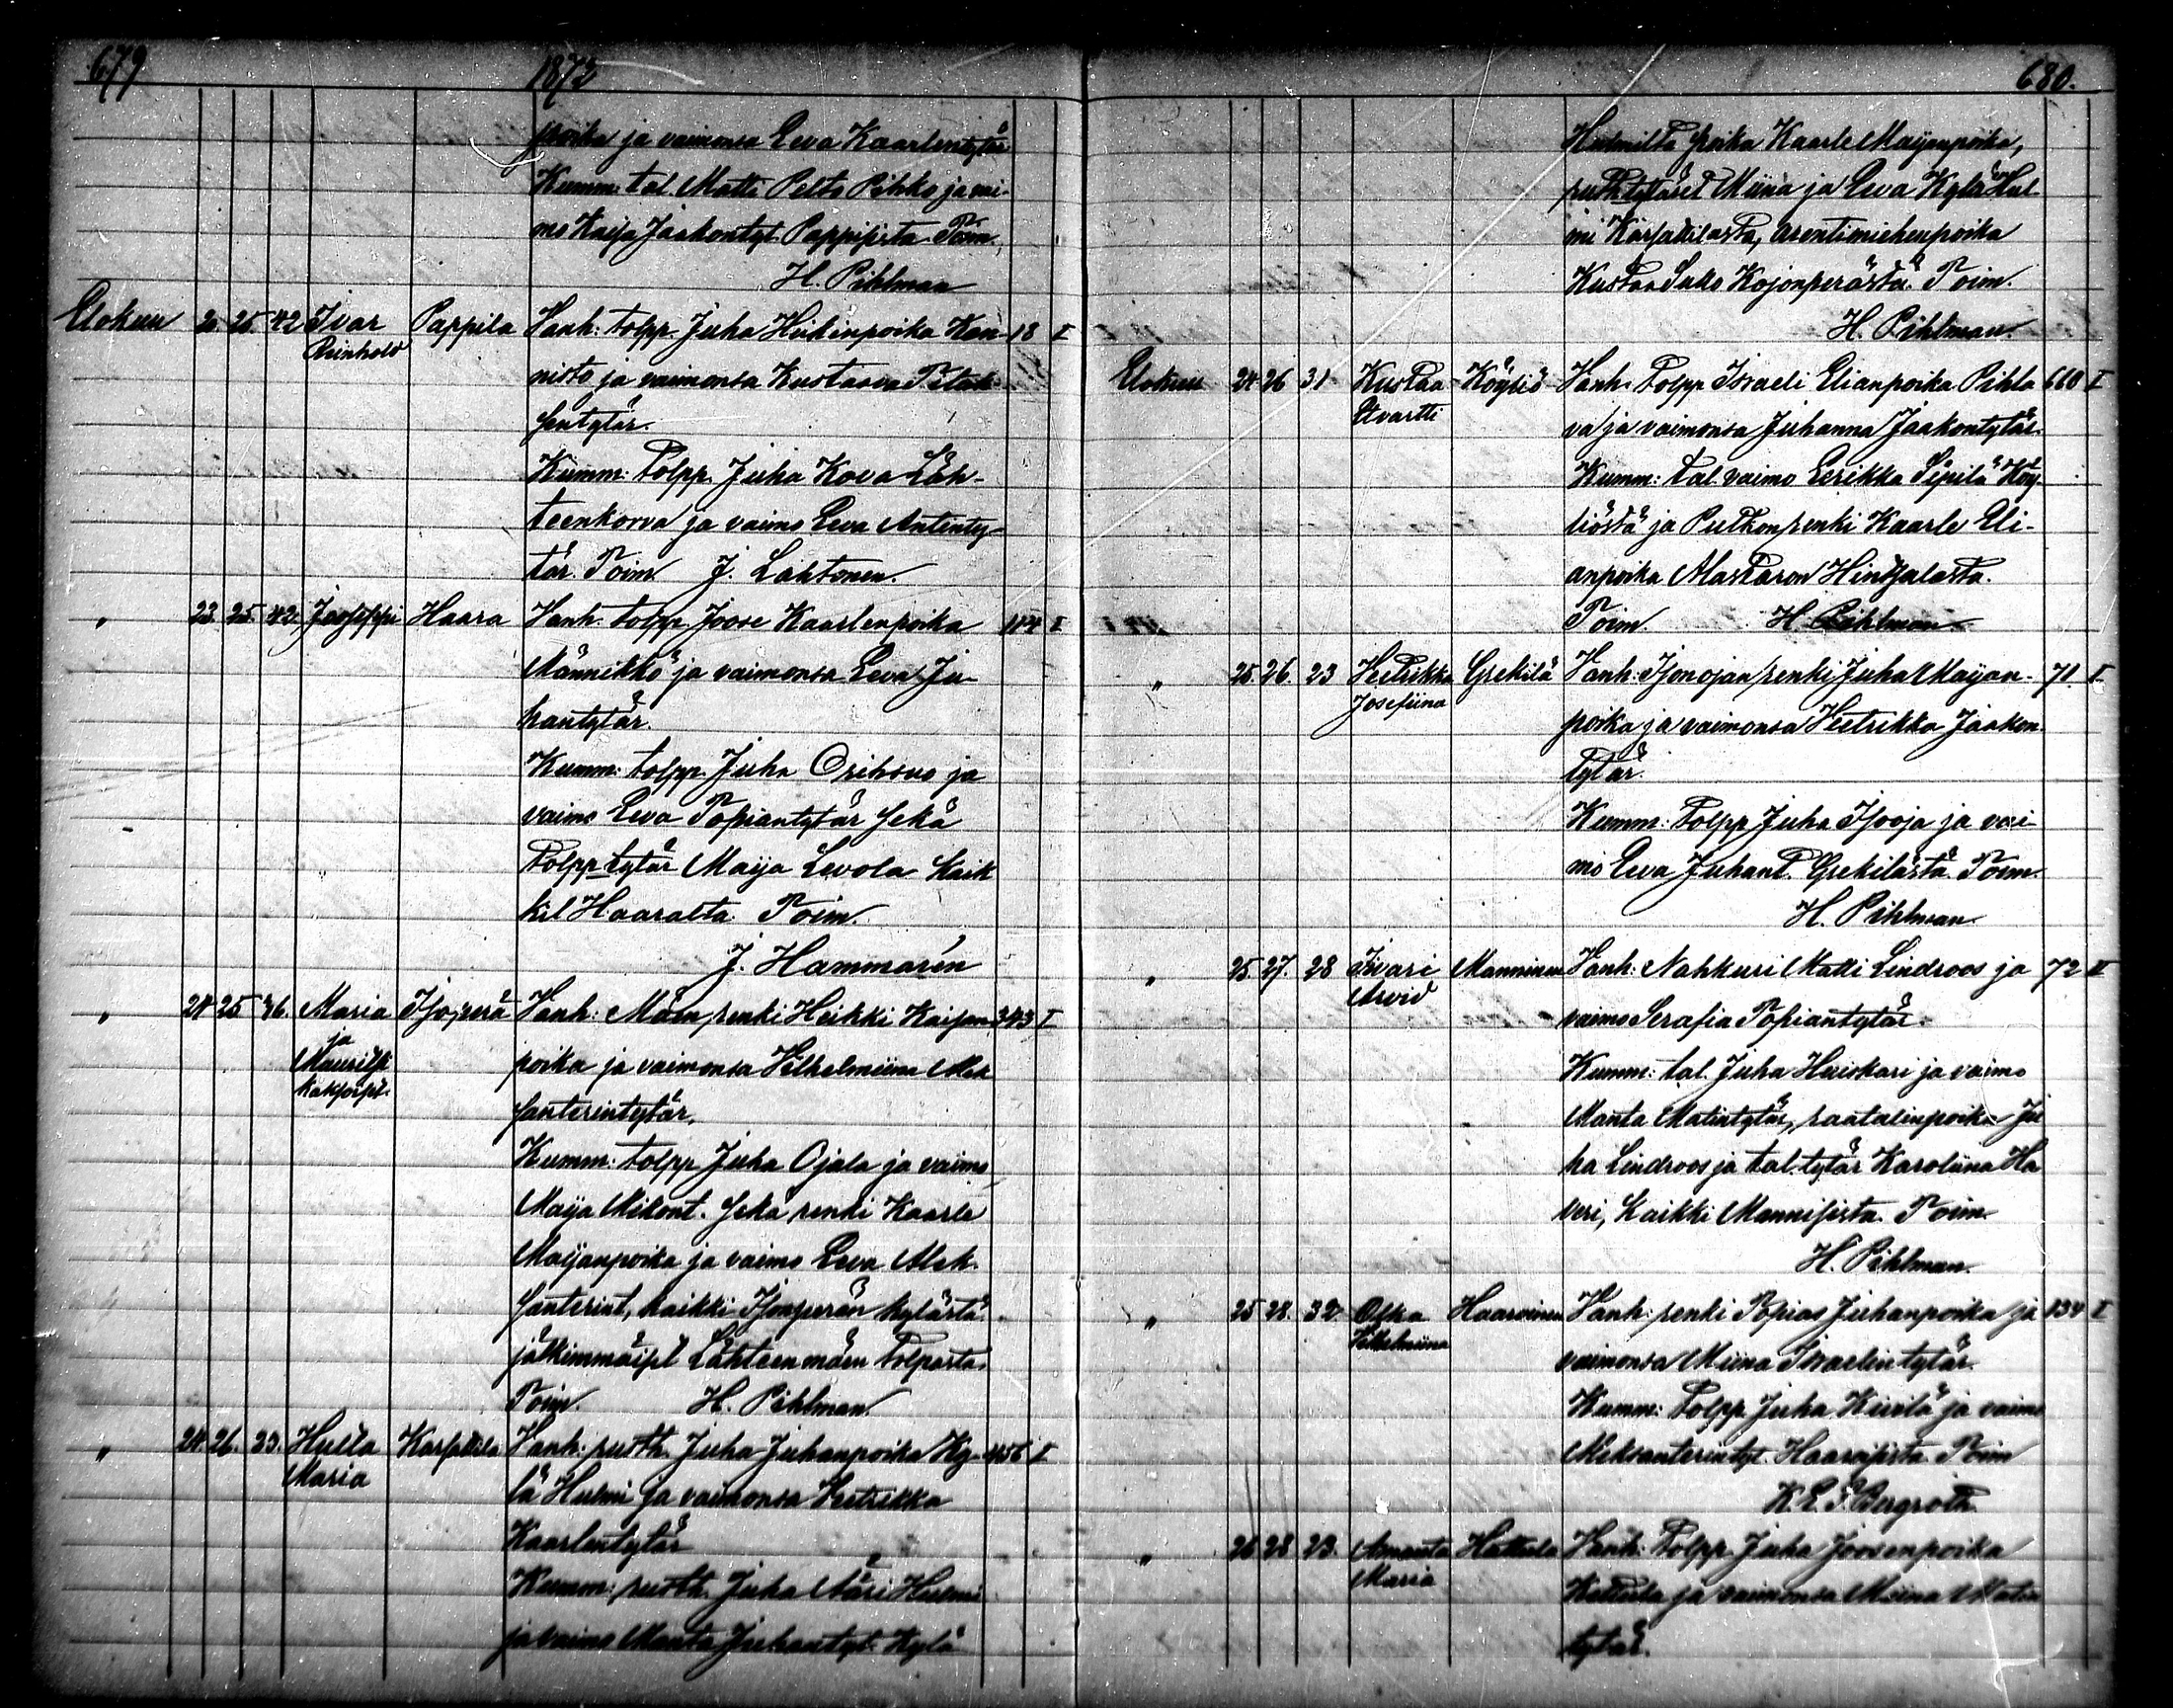 679 1872
poika ja vaimonsa Eeva Kaarlentytär
Kumm: tal. Matti Pelto Pihko ja vai-
mo Kaija Jaakontyt. Pappisista Toim.
H. Pihlman
Elokuu 2. 25. 42 Ivar Reinhold Pappila Vanh: tolpp. Juha Heikinpoika Kan- 18 I
nisto ja vaimonsa Kustaava
sentytär.
Kumm: Tolpp. Juha Kova Läh-
teenkorva ja vaimo Eeva Antinty-
tär. Toim. J. Lahtonen.
" 23. 25. 42. Joseppi Haara Vanh. tolpp. Joose Kaarlenpoika 114 I
Männikkö ja vaimonsa Eeva Ju-
hantytär.
Kumm: tolpp. Juha Orihsuo ja
vaimo Eeva Topiantytär sekä
Tolpp. tytär Maija Levola kaik
ki Haaralta. Toim.
J. Hammarén
" 24. 25. 36. Maria ja Mauritsi kaksoiset. Isoperä Vanh: Mäen renki Heikki Kaisan 343 I
poika ja vaimonsa Vilhelmiina Alek
santerintytär.
Kumm: tolpp Juha Ojala ja vaimo
Maija Mikont. sekä renki Kaarle
Maijanpoika ja vaimo Eeva Alek.
santerint, kaikki Isonperän kylästä
jälkimmäiset Lähteenmäen Tolpasta.
Toim. H. Pihlman.
" 24. 26. 23. Hulta Maria Karsatila Vanh: rusth. Juha Juhanpoika Ky- 456 I
lä Hulmi ja vaimonsa Heetrikka
Kaarlentytär
Kumm: rusth. Juha Hulmi
ja vaimo Manta Juhantyt. Kylä
680.
Hulmilta poika Kaarle Maijanpoika,
rusth. tytäret Miina ja Eeva Kylä Hul
mi Karsatilasta, arentimiehenpoika
Kustaa Sallo Kojonperästä. Toim.
H. Pihlman.
Elokuu 24 26 31 Kustaa Etvartti Köyliö Vanh: Tolpp. Israeli Elianpoika Pihla 660 I
va ja vaimonsa Juhanna Jaakontytär.
Kumm: tal. vaimo Eerikka Sipilä Köy
liöstä ja Pulkon renki Kaarle Eli-
anpoika Maskaron Hintsalasta.
Toim. H. Pihlman
" 25. 26. 23 Heetrikka Josefiina Grekilä Vanh: Isonojan renki Juha Maijan- 71. I
poika ja vaimonsa Heetrikka Jaakon
tytär.
Kumm: Tolpp Juha Isooja ja vai-
mo Eeva Juhant. Grekilästä. Toim.
H. Pihlman
" 25. 27. 28 Iivari Arvid Manninen Vanh: Nahkuri Matti Lindroos ja 72 II
vaimo Serafia Topiantytär.
Kumm: tal. Juha Huiskari ja vaimo
Manta Matintytär, raatalinpoika Ju
ha Lindroos ja tal. tytär Karoliina Ha
veri, kaikki Mannisista. Toim.
H. Pihlman.
" 25. 28. 32. Olka Vilhelmiina Haarainen Vanh: renki Topias Juhanpoika ja 134 I
vaimonsa Miina Israelintytär.
Kumm: Tolpp Juha Kivilä ja vaimo
Aleksanterintyt. Haaraisista. Toim
K. E. S. Bergroth
" 26 28 23. Amanta Maria Hattula Vanh: Tolpp. Juha Joosenpoika
Kettula ja vaimonsa Miina Matin
tytär.